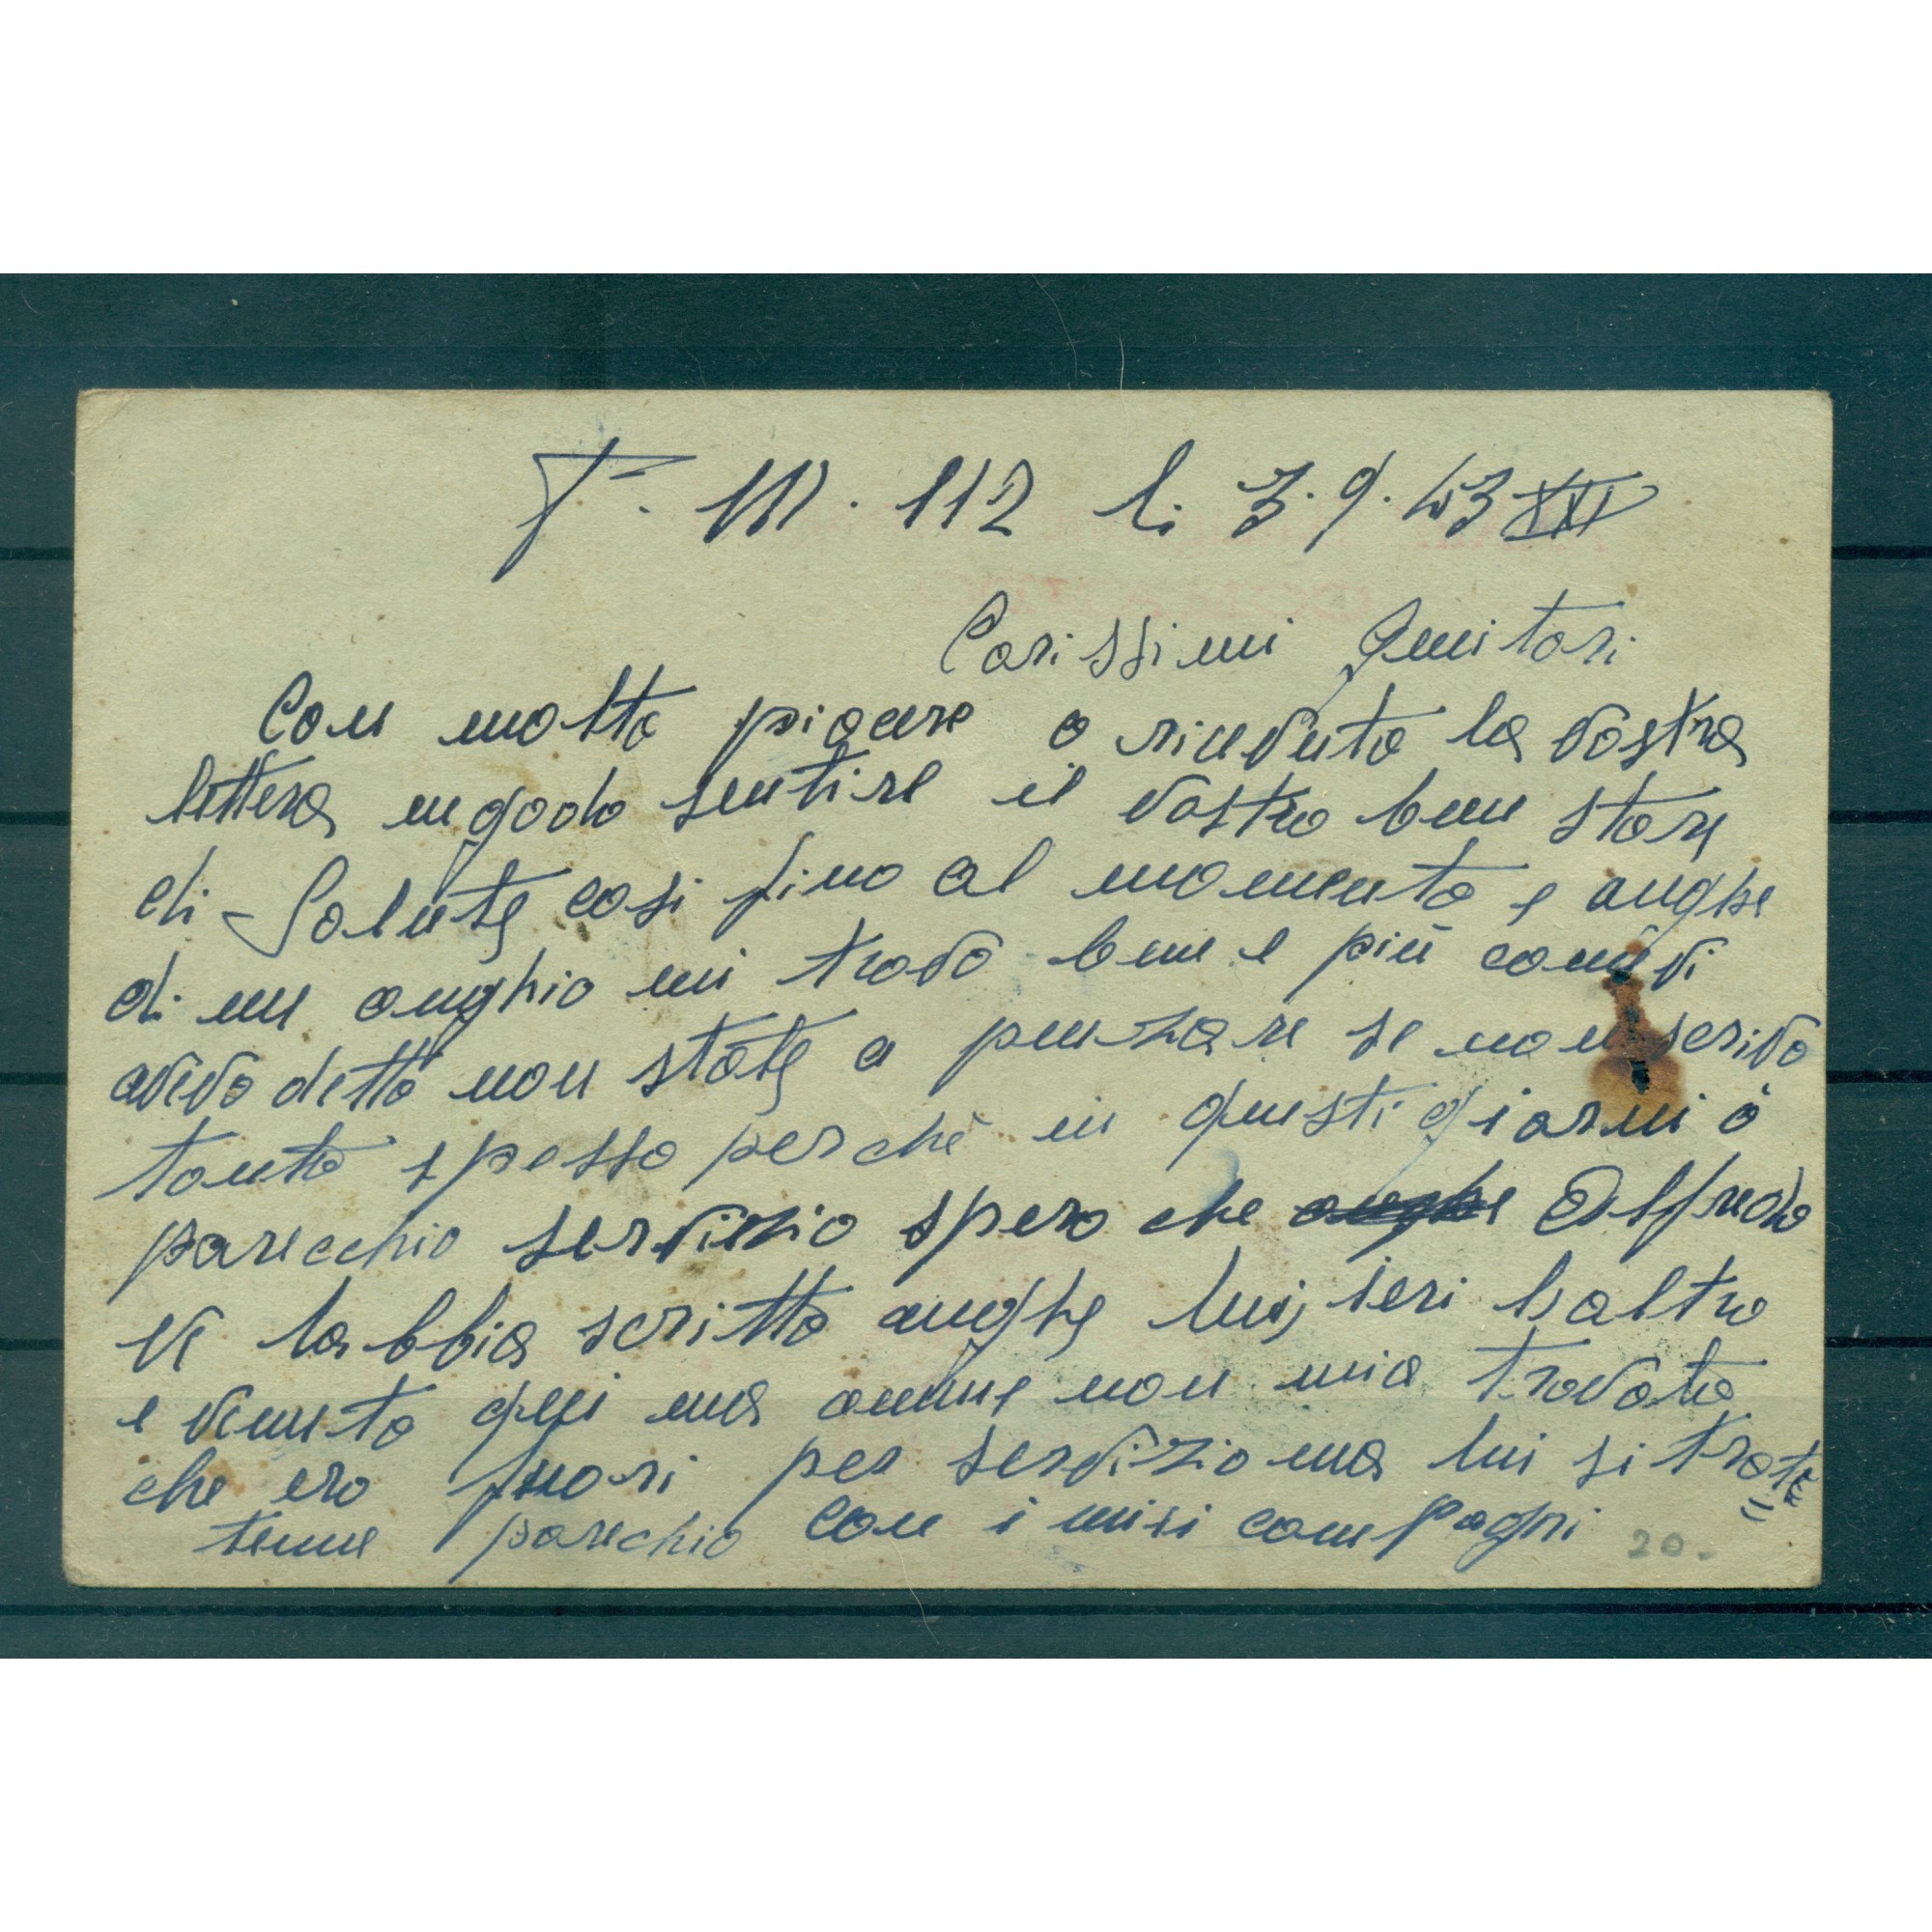 P. M. 112 li 3.9.43 XXI
Carissimi Genitori
Con molto piacere o ricevuto la vostra
lettera e godo sentire il vostro bene stare
di Salute cosi fino al momento e anghe
di me anghio mi trovo bene e più come vi
avevo detto non state a penzare se non scrivo
tanto spesso perchè in questi giorni ò
parecchio servizio spero che anghe Alfredo
vi labbia scritto anghe lui, ieri laltro
e venuto qui ma amme non mia trovato
che ero fuori per servizio ma lui si trat=
tenne parechio con i miei compagni
20.